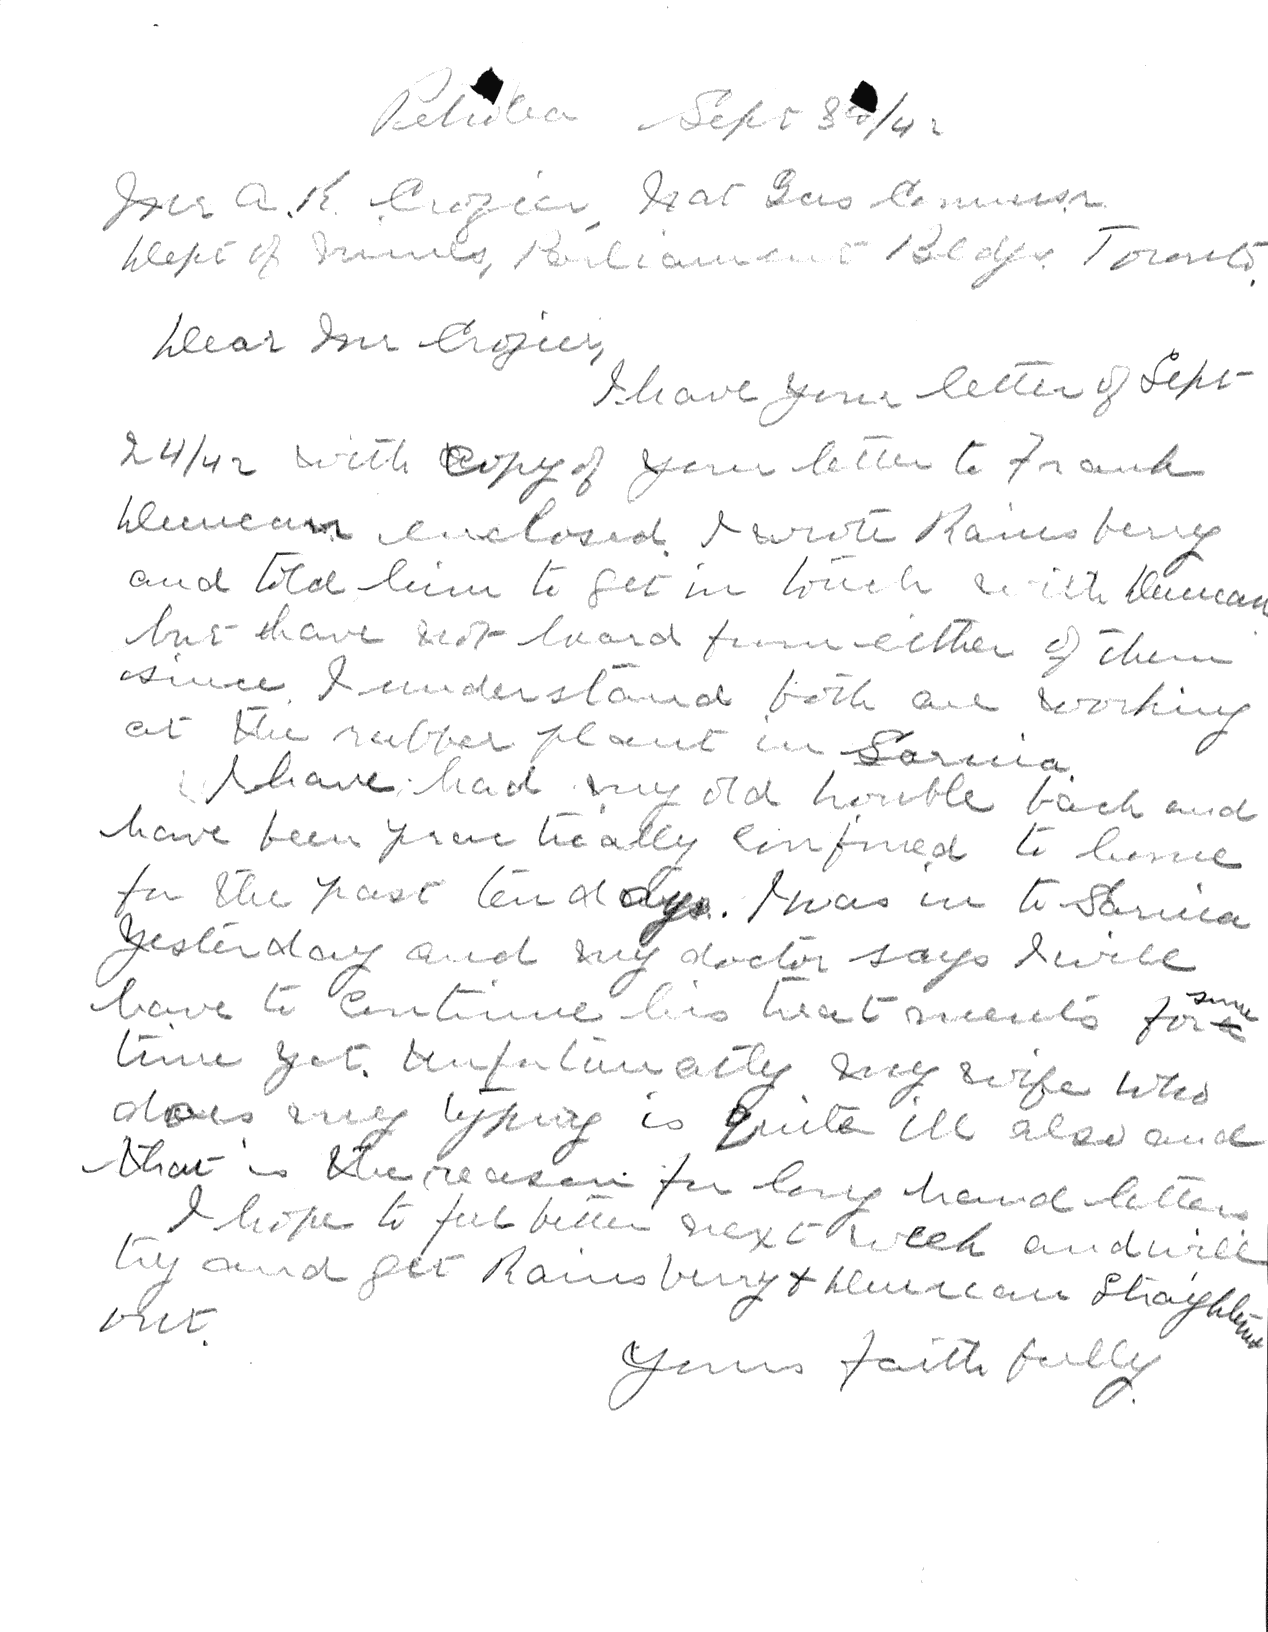 Petrolea Sept 30/42
Mr A.K. Crozier, Nat Gas Commissr
Dept of Mines, Parliament Bldgs. Toronto.
Dear Mr Crozier,
I have your letter of Sept
24/42 with copy of your letter to Frank
Duncan enclosed. I wrote Rainsberry
and told him to get in touch with Duncan
but have not heard from either of them
since. I understand both are working
at the rubber plant in Sarnia.
I have had my old trouble back and
have been practically confined to home
for the past ten days. I was in to Sarnia
Yesterday and my doctor says I will
have to continue his treatments for some
time yet. Unfortunatly my wife who
does my typing is quite ill also and
that is the reason for long hand letters.
I hope to feel better next week and will
try and get Rainsberry & Duncan straightened
out.
Yours faithfully.